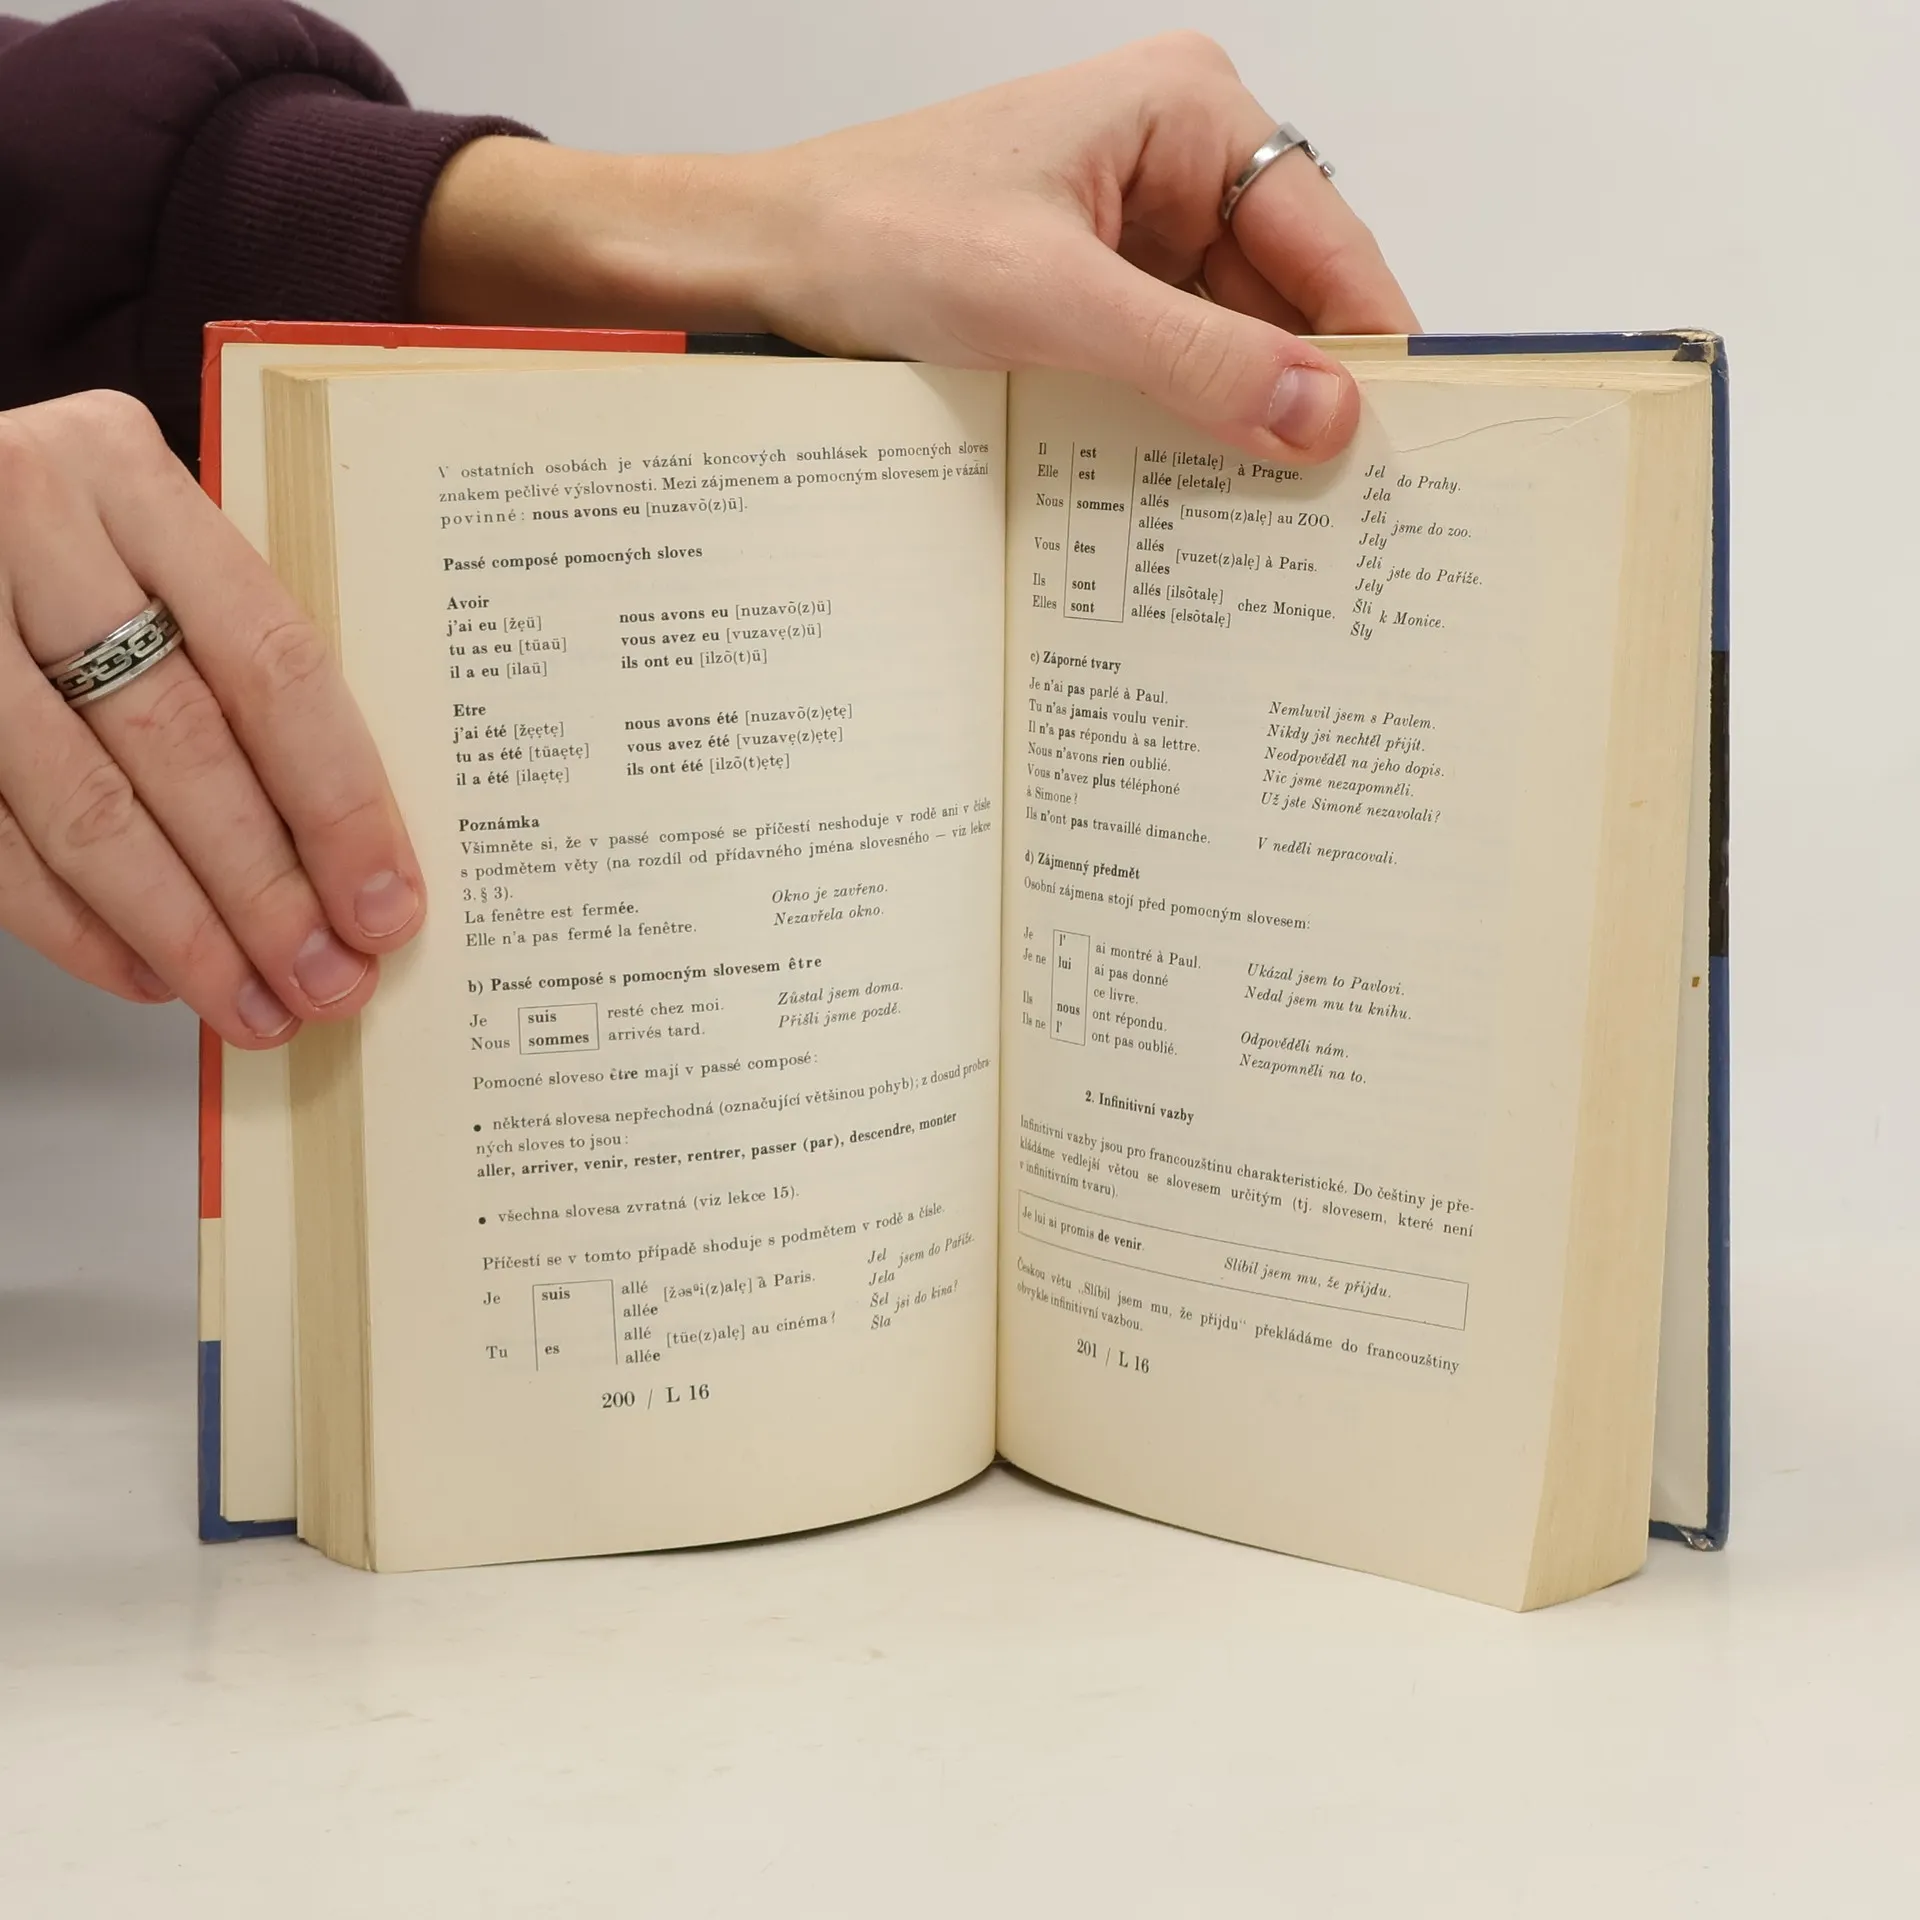 V ostatních osobách je vázání koncových souhlásek pomocných sloves
znakem pečlivé výslovnosti. Mezi zájmenem a pomocným slovesem je vázání
povinné: nous avons eu [nuzavõ(z)ü].
Passé composé pomocných sloves
Avoir
j'ai eu [žęü] nous avons eu [nuzavõ(z)ü]
tu as eu [tüaü] vous avez eu [vuzavę(z)ü]
il a eu [ilaü] ils ont eu [ilzõ(t)ü]
Etre
j'ai été [žęętę] nous avons été [nuzavõ(z)ętę]
tu as été [tüaętę] vous avez été [vuzavę(z)ętę]
il a été [ilaętę] ils ont été [ilzõ(t)ętę]
Poznámka
Všimněte si, že v passé composé se příčestí neshoduje v rodě ani v čísle
s podmětem věty (na rozdíl od přídavného jména slovesného — viz lekce
3. § 3).
La fenêtre est fermée. Okno je zavřeno.
Elle n'a pas fermé la fenêtre. Nezavřela okno.
b) Passé composé s pomocným slovesem être
Je suis resté chez moi. Zůstal jsem doma.
Nous sommes arrivés tard. Přišli jsme pozdě.
Pomocné sloveso être mají v passé composé:
• některá slovesa nepřechodná (označující většinou pohyb); z dosud probra-
ných sloves to jsou:
aller, arriver, venir, rester, rentrer, passer (par), descendre, monter
• všechna slovesa zvratná (viz lekce 15).
Příčestí se v tomto případě shoduje s podmětem v rodě a čísle.
Je suis allé [žəsᶸi(z)alę] à Paris. Jel jsem do Paříže.
allée Jela
Tu es allé [tüe(z)alę] au cinéma? Šel jsi do kina?
allée Šla
200 / L 16
Il est allé [iletalę] à Prague. Jel do Prahy.
Elle est allée [eletalę] Jela
Nous sommes allés [nusom(z)alę] au ZOO. Jeli jsme do zoo.
allées Jely
Vous êtes allés [vuzet(z)alę] à Paris. Jeli jste do Paříže.
allées Jely
Ils sont allés [ilsõtalę] chez Monique. Šli k Monice.
Elles sont allées [elsõtalę] Šly
c) Záporné tvary
Je n'ai pas parlé à Paul. Nemluvil jsem s Pavlem.
Tu n'as jamais voulu venir. Nikdy jsi nechtěl přijít.
Il n'a pas répondu à sa lettre. Neodpověděl na jeho dopis.
Nous n'avons rien oublié. Nic jsme nezapomněli.
Vous n'avez plus téléphoné Už jste Simoně nezavolali?
à Simone?
Ils n'ont pas travaillé dimanche. V neděli nepracovali.
d) Zájmenný předmět
Osobní zájmena stojí před pomocným slovesem:
Je l' ai montré à Paul. Ukázal jsem to Pavlovi.
Je ne lui ai pas donné Nedal jsem mu tu knihu.
ce livre.
Ils nous ont répondu. Odpověděli nám.
Ils ne l' ont pas oublié. Nezapomněli na to.
2. Infinitivní vazby
Infinitivní vazby jsou pro francouzštinu charakteristické. Do češtiny je pře-
kládáme vedlejší větou se slovesem určitým (tj. slovesem, které není
v infinitivním tvaru).
Je lui ai promis de venir. Slíbil jsem mu, že přijdu.
Českou větu „Slíbil jsem mu, že přijdu“ překládáme do francouzštiny
obvykle infinitivní vazbou.
201 / L 16